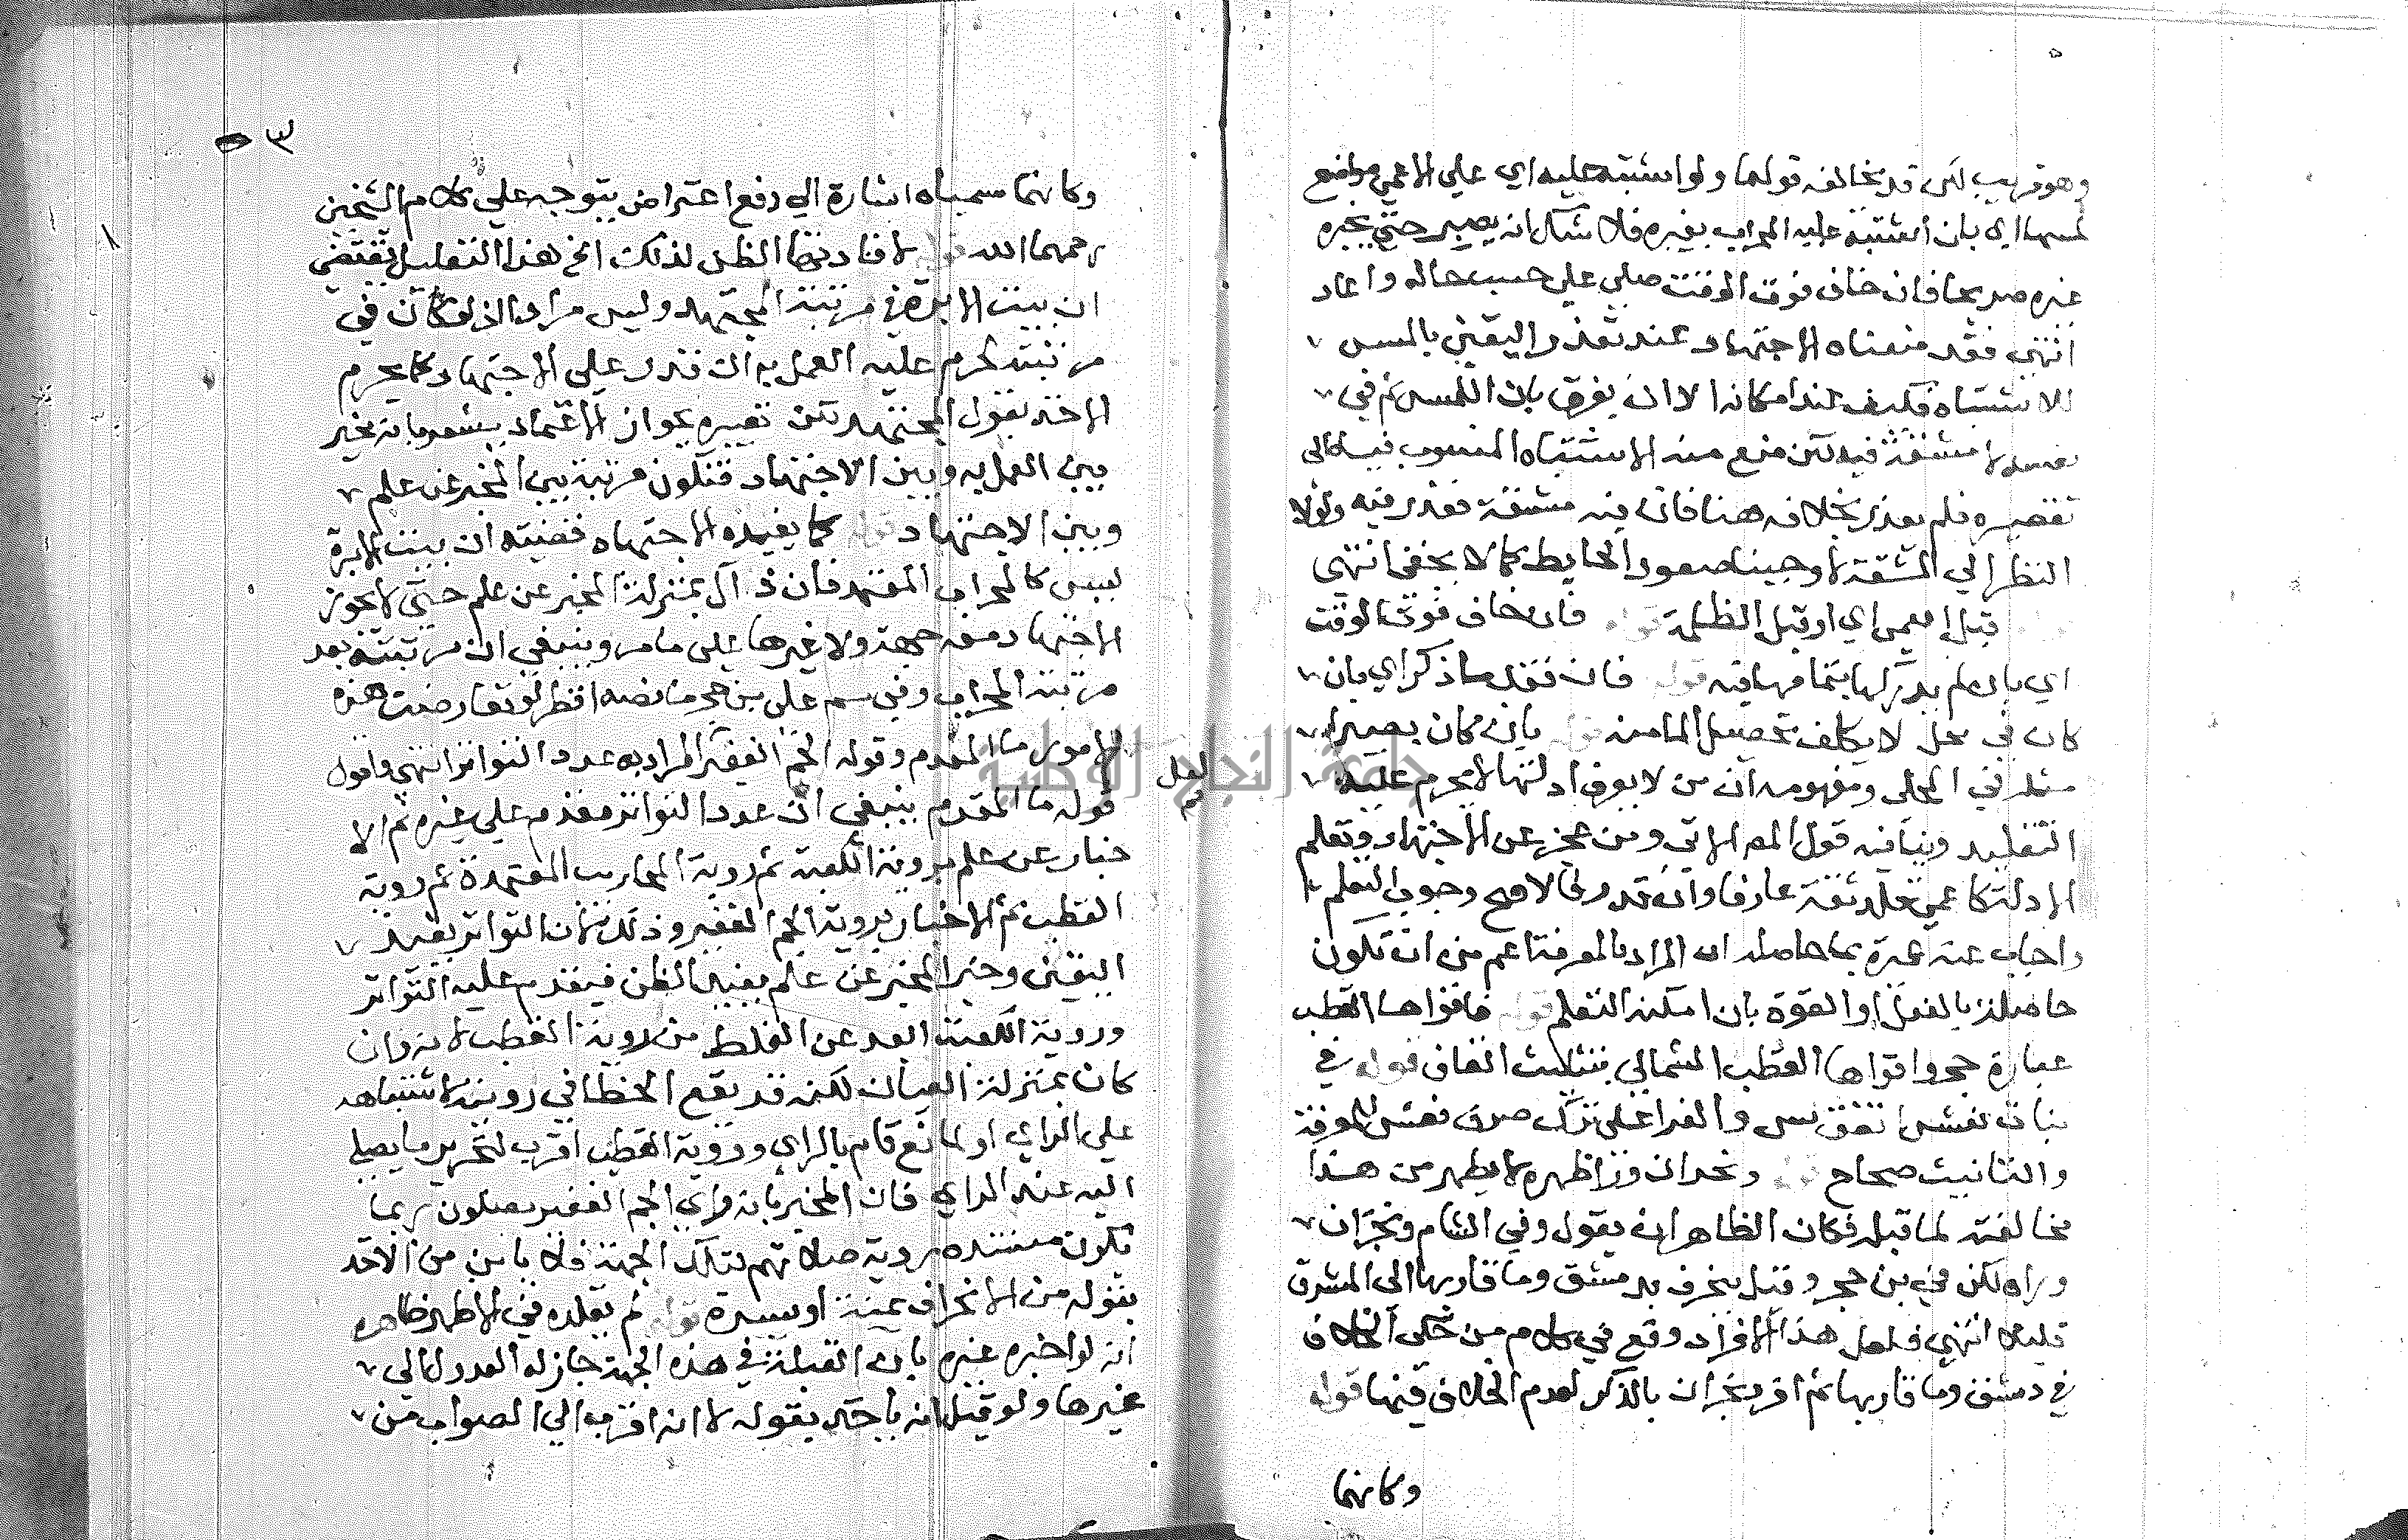 وهو قريب لكن قد يخالفه قولها ولو اشتبه عليه اي على الاعمى مواضع
لمسها اي بان اشتبه عليه المحراب بغيره فلا شك انه يصبر حتى يخبره
غيره صريحا فان خاف فوت الوقت صلى على حسب حاله واعاد
انتهى فقد منعناه الاجتهاد عند تعذر اليقين بالمس
للاشتباه فكيف عند امكانه الا ان يفرق بان اللمس ثم في
لا مشقة فيه لكن منع منه الاشتباه المنسوب فيه الى
تقصيره فلم يعذر بخلافه هنا فان فيه مشقة فعذر فيه ولولا
النظر الى المشقة لاوجبنا صعود الحايط كما لا يخفى انتهى
قبل العمى اي او قبل الظلمة قوله فان خاف فوت الوقت
اي بان علم يدركها بتمامها فيه قوله فان فقد ما ذكر اي بان
كان في محل لا يكلف تحصيل الما منه قوله بان كان بصيرا
مثله في المحلى ومفهومه ان من لا يعرف ادلتها لا يحرم عليه
التقليد وينافيه قول المص الاتي ومن عجز عن الاجتهاد وتعلم
الادلة كاعمى قلد ثقة عارفا وان قدر فالاصح وجوب التعلم
واجاب عنه عميرة بما حاصله ان المراد بالمعرفة اعم من ان تكون
حاصلة بالفعل او القوة بان امكنه التعلم قوله فاقواها القطب
عبارة حج واقواها القطب الشمالي بتثليث القاف قوله في
بنات نعش اتفق س والفرا على ترك صرف نعش للمعرفة
والتانيث صحاح قوله ونجران ورا ظهره لا يظهر من هذا
مخالفته لما قبله فكان الظاهر ان يقول وفي الشام ونجران
وراه لكن في بن حجر وقيل ينحرف بدمشق وما قاربها الى المشرق
قليلا انتهى فلعل هذا الافراد وقع في كلام من حكى الخلاف
في دمشق وما قاربها ثم افرد نجران بالذكر لعدم الخلاف فيها قوله
وكانهما
٣
وكانهما اشارة الى دفع اعتراض يتوجه على كلام الشيخين
رحمهما الله قوله لافادتها الظن لذلك الخ هذا التعليل يقتضي
ان بيت الابرة في مرتبة المجتهد وليس مرادا اذ لو كان في
مرتبته لحرم عليه العمل به ان قدر على الاجتهاد كما يحرم
الاخذ بقول المجتهد لكن تعبيره بجواز الاعتماد يشعر بانه يخير
بين العمل به وبين الاجتهاد فتكون مرتبة بين المخبر عن علم
وبين الاجتهاد قوله كما يفيده الاجتهاد قضيته ان بيت الابرة
ليس كالمحراب المعتمد فان ذاك بمنزلة المخبر عن علم حتى لا يجوز
الاجتهاد معه جهة ولا غيرها على ما مر وينبغي ان مرتبته بعد
مرتبة المحراب وفي سم على بن حجر ما نصه انظر لو تعارضت هذه
الامور ما المقدم وقوله الجم الغفير المراد به عدد التواتر انتهى واقول
لعل ثم
قوله ما المقدم ينبغي ان عدد التواتر مقدم على غيره ثم الا
خبار عن علم برؤية الكعبة ثم روية المحاريب المعتمدة ثم روية
القطب ثم الاخبار بروية الجم الغفير وذلك لان التواتر يفيد
اليقين وخبر المخبر عن علم يفيد الظن فيقدم عليه التواتر
وروية الكعبة ابعد عن الغلط من روية القطب لانه وان
كان بمنزلة العيان لكنه قد يقع الخطا في رويته لاشتباهه
على الراي او لمانع قام بالراي وروية القطب اقرب لتحرير ما يصلي
اليه عند الراي فان المخبر بانه راي الجم الغفير يصلون ربما
تكون مستنده روية صلاتهم لتلك الجهة فلا يامن من الاخذ
بقوله من الانحراف يمنة او يسرة قوله ثم يقلده في الاظهر ظاهره
انه لو اخبره غيره بان القبلة في هذه الجهة جاز له العدول الى
غيرها ولو قيل انه ياخذ بقوله لا انه اقرب الى الصواب من
جامعة النجاح الوطنية